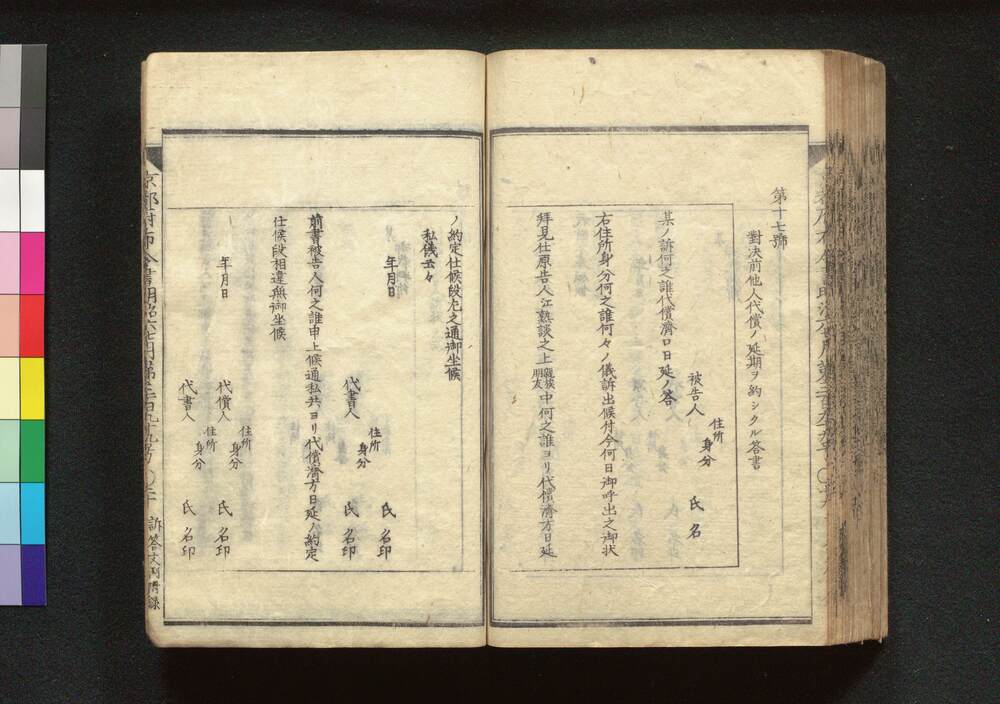 第十七號
對決前他人代償ノ延期ヲ約シタル答書
住所
身分
被告人
氏名
某ノ訴何之誰代償濟口日延ノ答
右住所身分何之誰何々ノ儀訴出候付今何日御呼出之御状
拜見仕原告人江熟談之上親族朋友中何之誰ヨリ代償濟方日延
ノ約定仕候段左之通御坐候
私儀云々
年月日
氏名印
住所
身分
代書人
氏名印
前書被告人何之誰申上候通私共ヨリ代償濟方日延ノ約定
仕候段相違無御坐候
年月日
住所
身分
代償人
氏名印
住所
身分
代書人
氏名印
京都府布令書明治六七月第二百九十九号
訴答文例附録